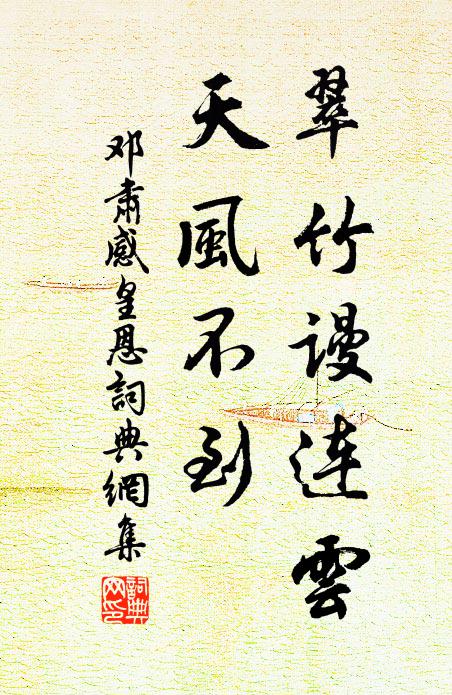 翠竹謾连雲
天風不到
邓肅感皇恩詞典網集
詞典网印